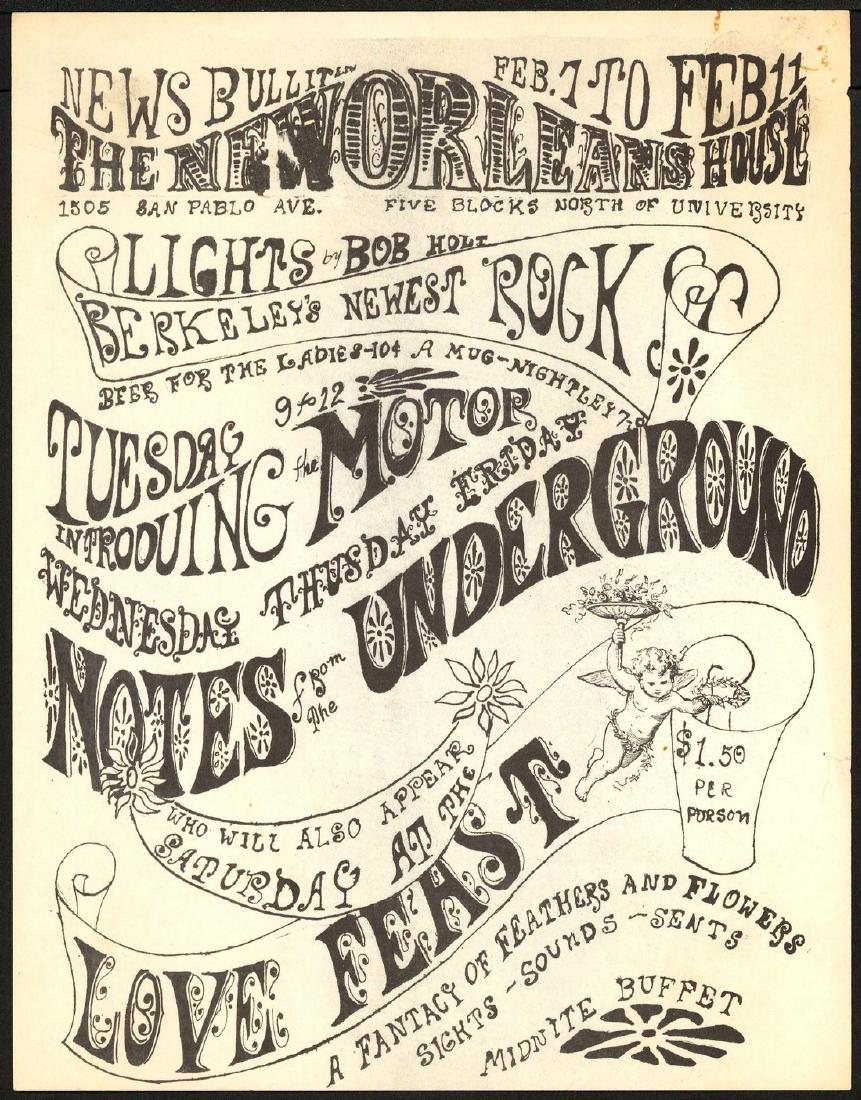 NEWS BULLITEN FEB. 7 TO FEB 11
THE NEW ORLEANS HOUSE
1505 SAN PABLO AVE. FIVE BLOCKS NORTH OF UNIVERSITY
LIGHTS by BOB HOLT
BERKELEY'S NEWEST ROCK
BEER FOR THE LADIES-10¢ A MUG-NIGHTLEY 7-
9 to 12
TUESDAY
INTRODUING the MOTOR
WEDNESDAY THUSDAY FRIDAY
NOTES from the UNDERGROUND
WHO WILL ALSO APPEAR
SATURDAY AT THE
LOVE FEAST
$1.50
PER
PURSON
A FANTACY OF FEATHERS AND FLOWERS
SIGHTS - SOUNDS - SENTS
MIDNITE BUFFET